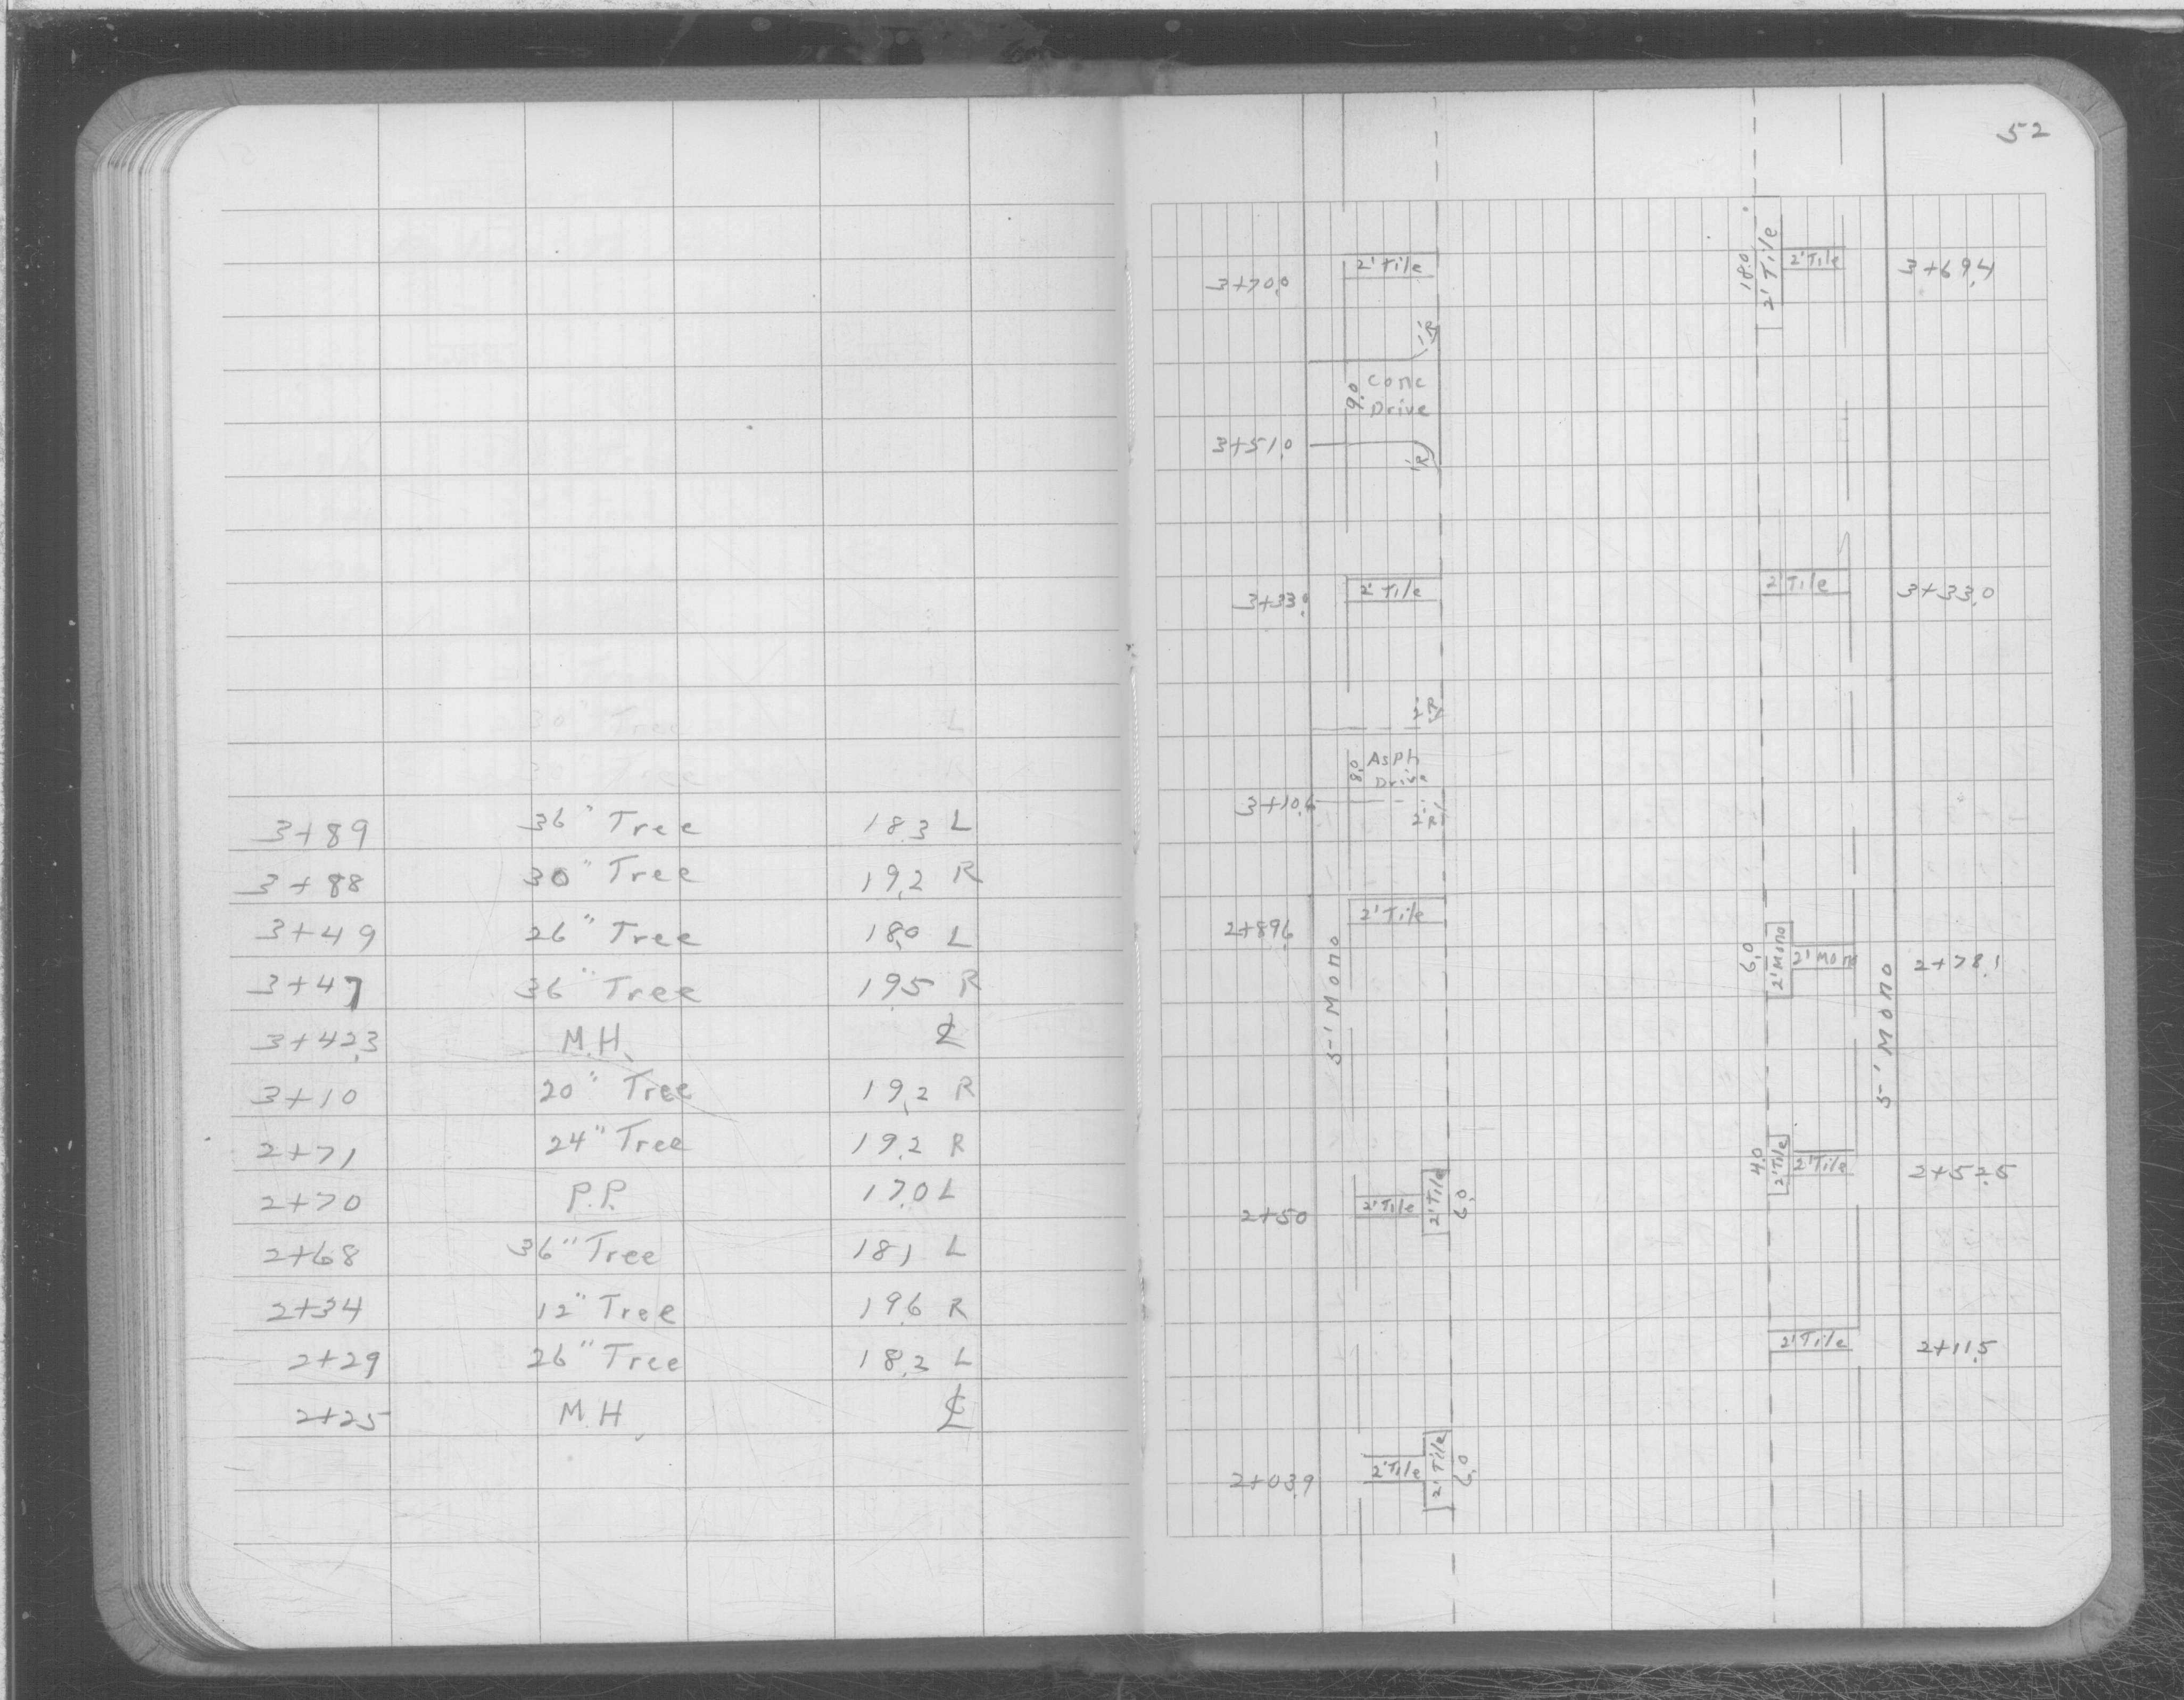 30" Tree L
3+89 36" Tree 18.3 L
3+88 30" Tree 19.2 R
3+49 26" Tree 18.0 L
3+47 36" Tree 19.5 R
3+42.3 M.H. ℄
3+10 20" Tree 19.2 R
2+71 24" Tree 19.2 R
2+70 P.P. 17.0 L
2+68 36" Tree 18.1 L
2+34 12" Tree 19.6 R
2+29 26" Tree 18.2 L
2+25 M.H. ℄
52
3+70.0 2' Tile 18.0 2' Tile 2' Tile 3+69.4
1'R
9.0 Conc
Drive
3+51.0
1'R
3+33.0 2' Tile 2' Tile 3+33.0
2'R
8.0 Asph
Drive
3+10.6 2'R
2+89.6 2' Tile
6.0 2' Mono 2' Mono 2+78.1
5' Mono 5' Mono
4.0 2' Tile 2' Tile 2+52.5
2+50 2' Tile 2' Tile 6.0
2' Tile 2+11.5
2+03.9 2' Tile 2' Tile 6.0